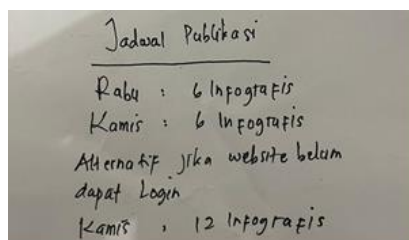 Jadwal Publikasi
Rabu : 6 Infografis
Kamis : 6 Infografis
Alternatif jika website belum
dapat Login
Kamis , 12 Infografis